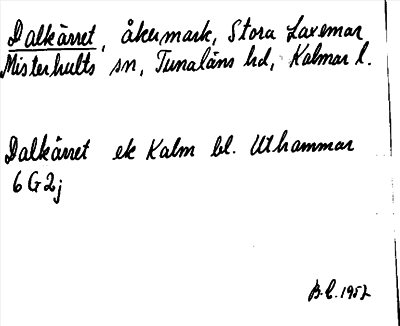 Dalkärret, åkermark, Stora Laxemar
Misterhults sn, Tunaläns hd, Kalmar l.
Dalkärret ek Kalm bl. Uthammar
6 G 2 j
B.L. 1952